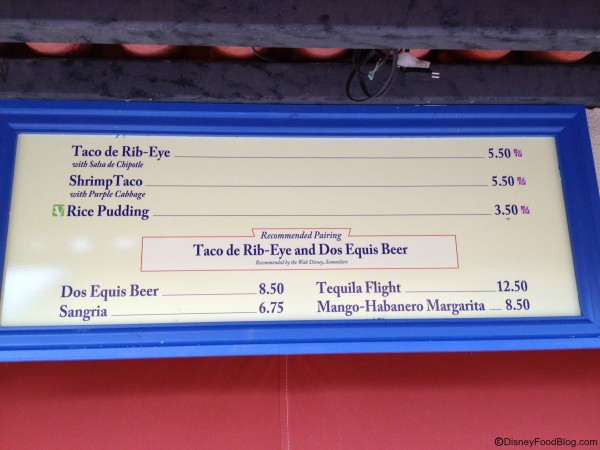 Taco de Rib-Eye 5.50
with Salsa de Chipotle
ShrimpTaco 5.50
with Purple Cabbage
V Rice Pudding 3.50
Recommended Pairing
Taco de Rib-Eye and Dos Equis Beer
Recommended by the Walt Disney, Sommeliers
Dos Equis Beer 8.50
Sangria 6.75
Tequila Flight 12.50
Mango-Habanero Margarita 8.50
©DisneyFoodBlog.com